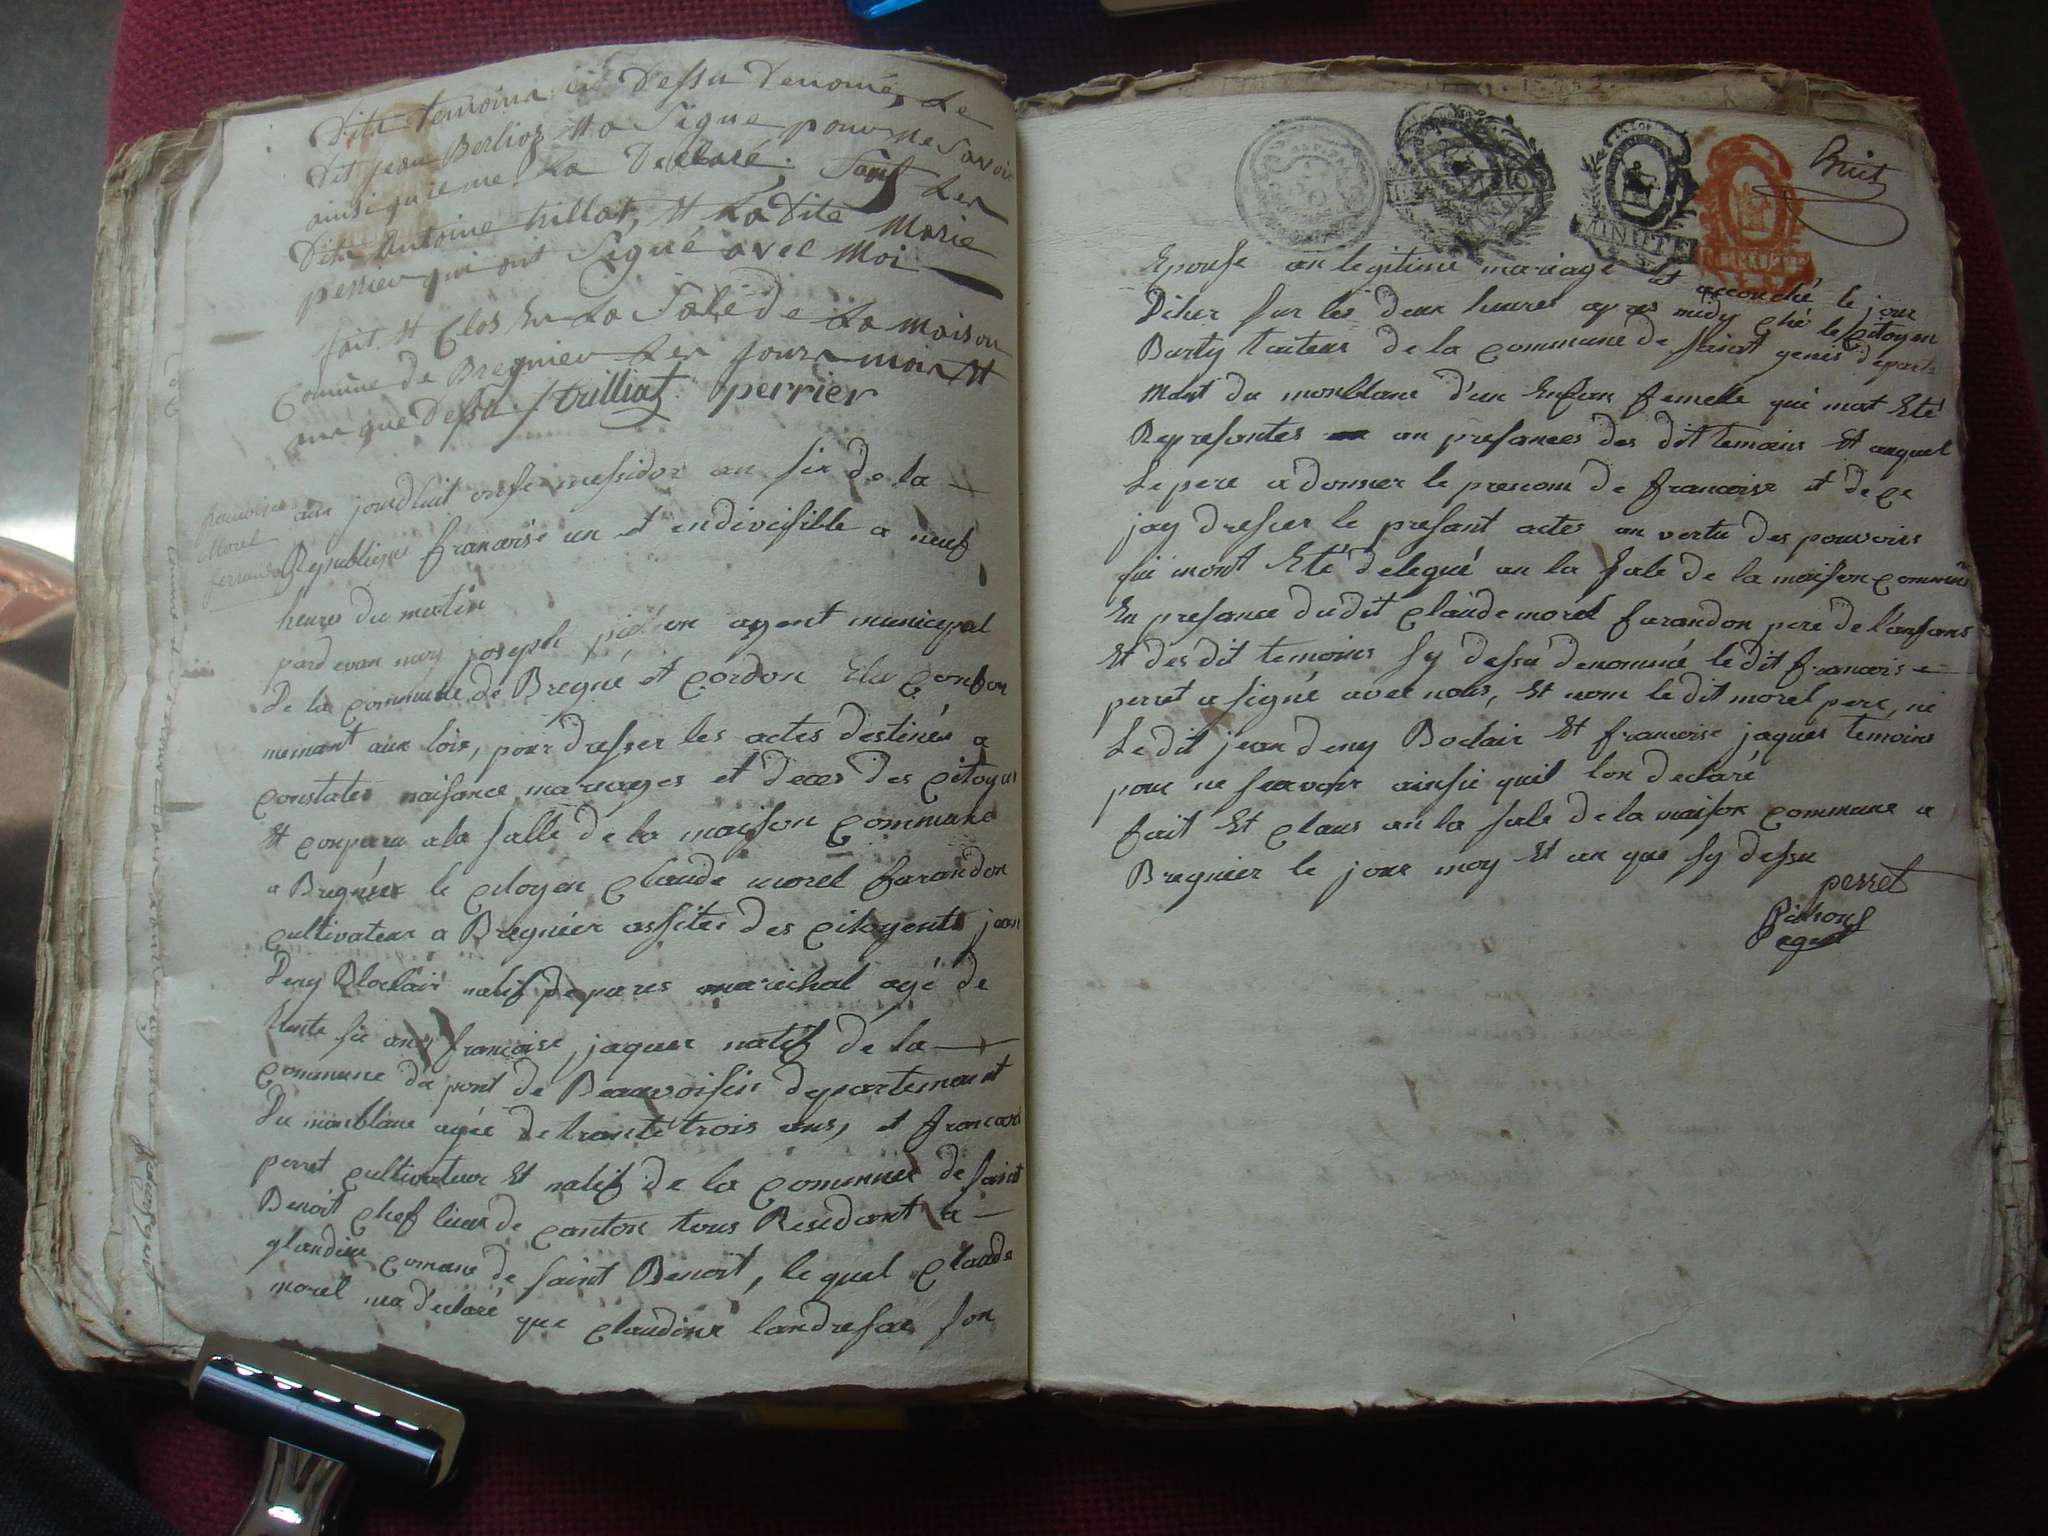 Dits temoins ci Dessu Denomé, Le
Dit jean Berlioz Na Signe pour ne Savoir
ainsi quieme La Declaré; Sauf Les
Dits Antoine trillat, et La Dite Marie
perrier qui ont Signé avec Moi
fait et Clos En La Sale de La maison
Comune de Bregnier Les jour moir et
an que Dessu trilliat perrier
francoise
Morel
ferrandon
aux jourdhuit onse messidor an six de la
Republique francoisé un et endivisible a neuf
heures du matin
pardevan moy joseph agent municipal
De la commune de Bregné et Cordon Elu Confor
mement aux lois, pour dresser les actes destinés a
constater naisance mariages et deces des citoyens
Et conparu a la salle de la maison commune
a Bregnier le citoyen Claude morel farandon
cultivateur a Bregnier assites des citoyents jean
Deny Bloclair natif de pares marechal agé de
trente six ans francoise jaques natif de la
Commune du pont de Beauvoisin departement
Du monblanc agée de trante trois ans, et francois
perret cultivateur Et natif de la Commune de saint
Benoit chef lieux de canton tous Residant a
glandieu comune de saint Benoit, le quel Claude
morel ma declaré que Claudine landresac son
MINUTE
huit
Epouse an legitime mariage Et accouché le jour
Dihier sur les deux heures apres midy ché le Citoyen
Burty traiteur de la commune de saint genis départe
Mant du monblanc d'un Enfan femelle qui mat Eté
Represantés an presances des dit temoins Et auquel
Le pere a donner le prenom de francoise et de ce
jay dresser le presant actes an vertu des pouvoirs
qui mont Eté delegué an la sale de la maison commune
En presance dudit Claude morel farandon pere de lanfans
Et des dit temoins sy dessu denommé le dit francois
perret a signé avec nous, Et nom le dit morel pere, ni
Le dit jean deny Boclair Et francoise jaques temoins
pour ne scavoir ainsie quil lon declaré
fait Et claus an la sale de la maison commune a
Bregnier le jour moy Et an que sy dessu
perret
agent